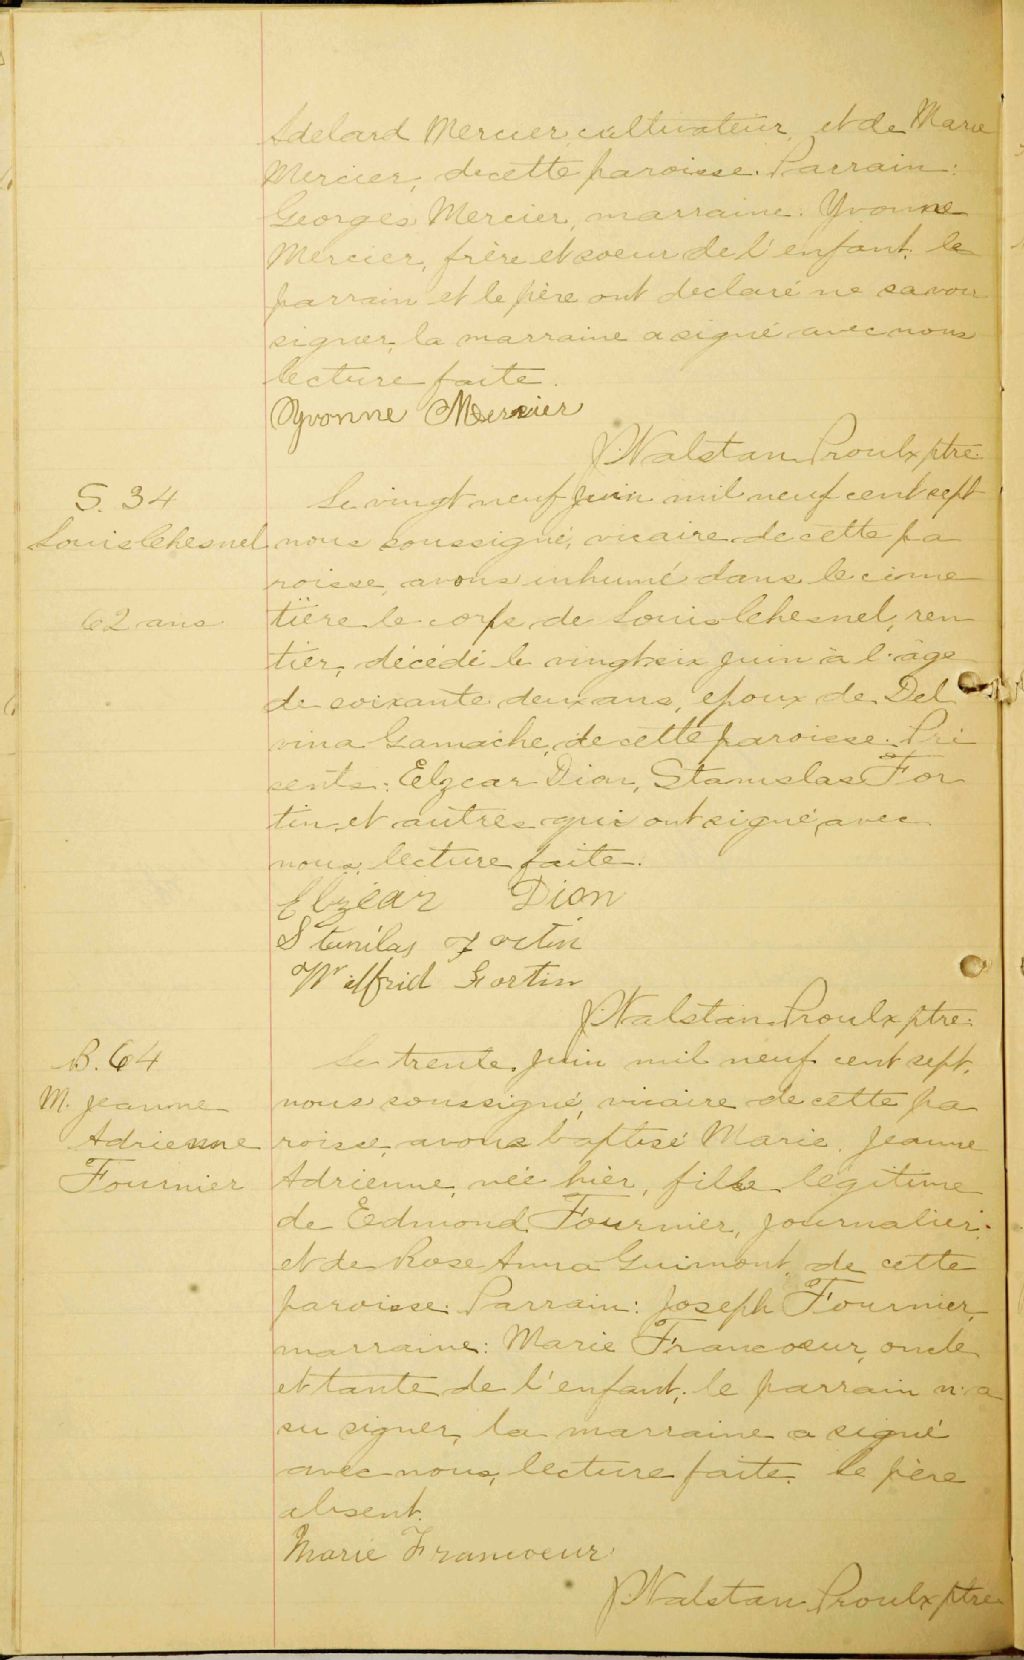 Adelard Mercier, cultivateur, et de Marie
Mercier, de cette paroisse. Parrain:
Georges Mercier, marraine: Yvonne
Mercier, frère et soeur de l'enfant; le
parrain et le père ont declaré ne savoir
signer, la marraine a signé avec nous
lecture faite.
Yvonne Mercier
J. Nalstan Proulx ptre.
S. 34
Louis Chesnel
62 ans
Le vingt neuf juin mil neuf cent sept
nous soussigné, vicaire de cette pa
roisse, avons inhumé dans le cime
tière le corps de Louis Chesnel, ren
tier, décédé le vingt-six juin à l'âge
de soixante deux ans, epoux de Del
vina Gamache, de cette paroisse. Pré
sents: Elzear Dion, Stanislas For
tin et autres qui ont signé avec
nous, lecture faite.
Elzéar Dion
Stanilas Fortin
Wilfrid Fortin
J. Nalstan Proulx ptre.
B. 64
M. Jeanne
Adrienne
Fournier
Le trente juin mil neuf cent sept,
nous soussigné, vicaire de cette pa
roisse, avons baptisé Marie Jeanne
Adrienne, née hier, fille légitime
de Edmond Fournier, journalier,
et de Rose Anna Guimont, de cette
paroisse. Parrain: Joseph Fournier,
marraine: Marie Francoeur, oncle
et tante de l'enfant; le parrain n'a
su signer, la marraine a signé
avec nous, lecture faite. Le père
absent.
Marie Francoeur
J. Nalstan Proulx ptre.